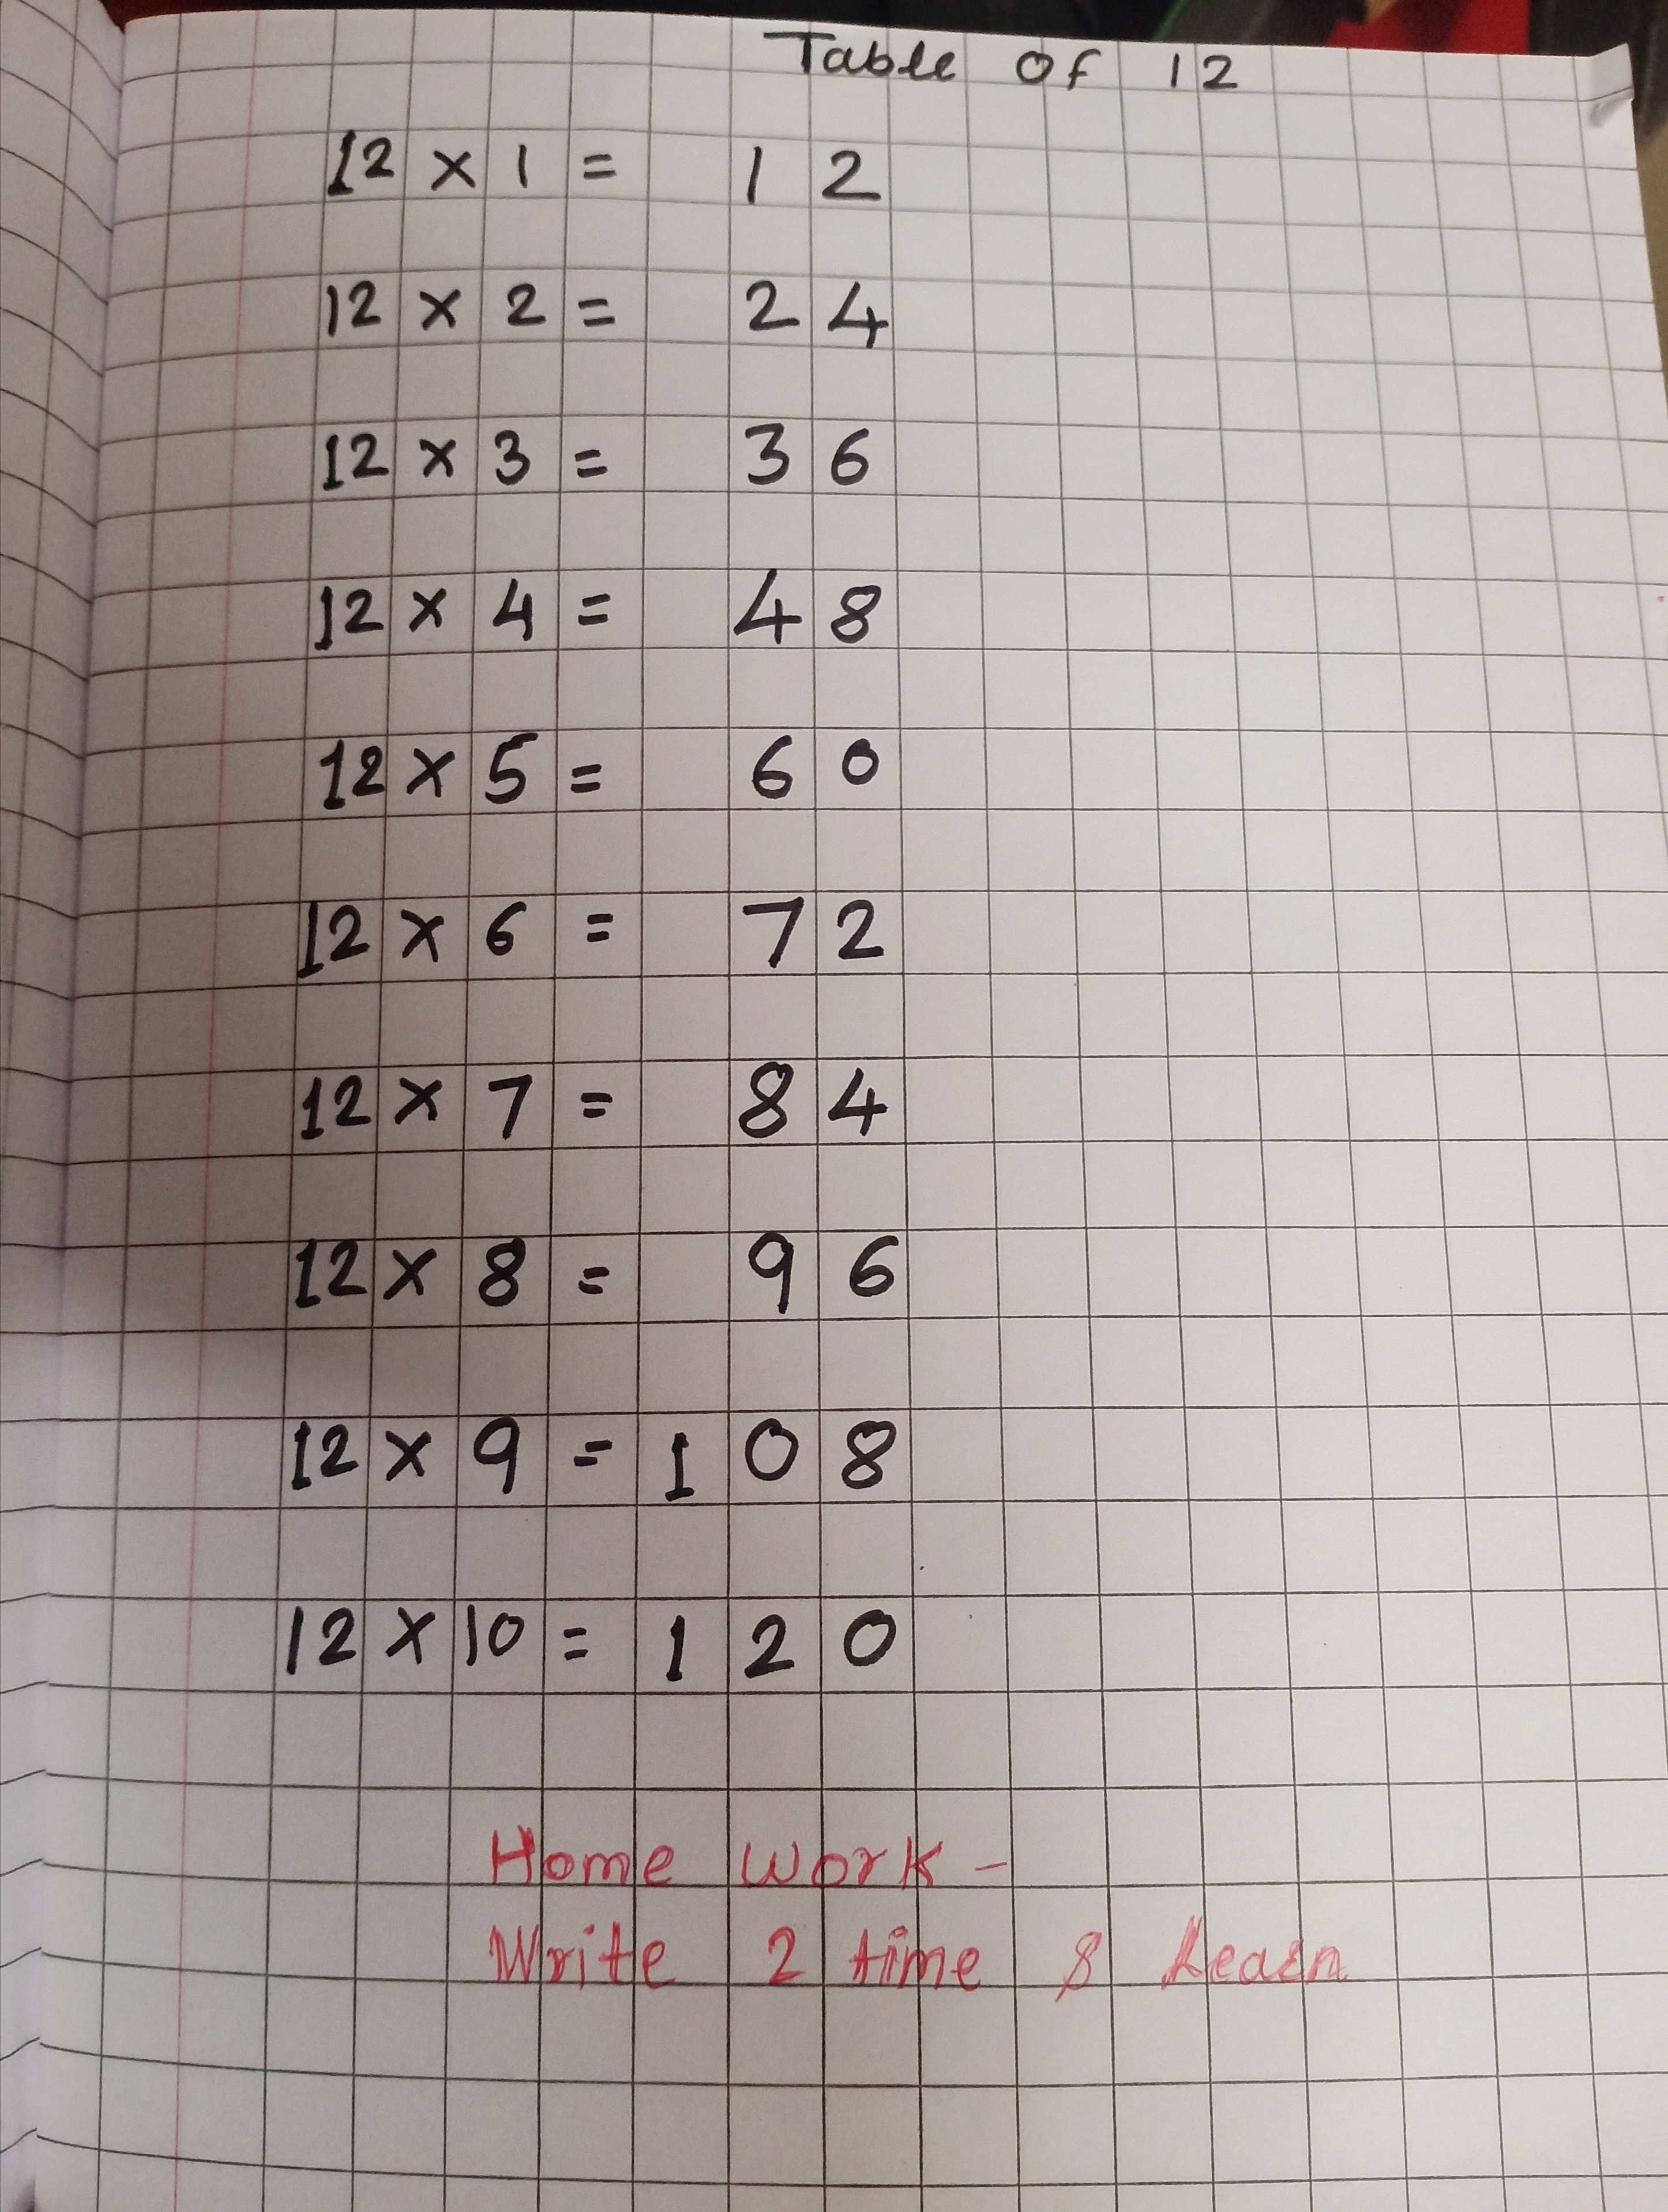 Table Of 12
12 × 1 = 12
12 × 2 = 24
12 × 3 = 36
12 × 4 = 48
12 × 5 = 60
12 × 6 = 72
12 × 7 = 84
12 × 8 = 96
12 × 9 = 108
12 × 10 = 120
Home Work -
Write 2 time & Learn